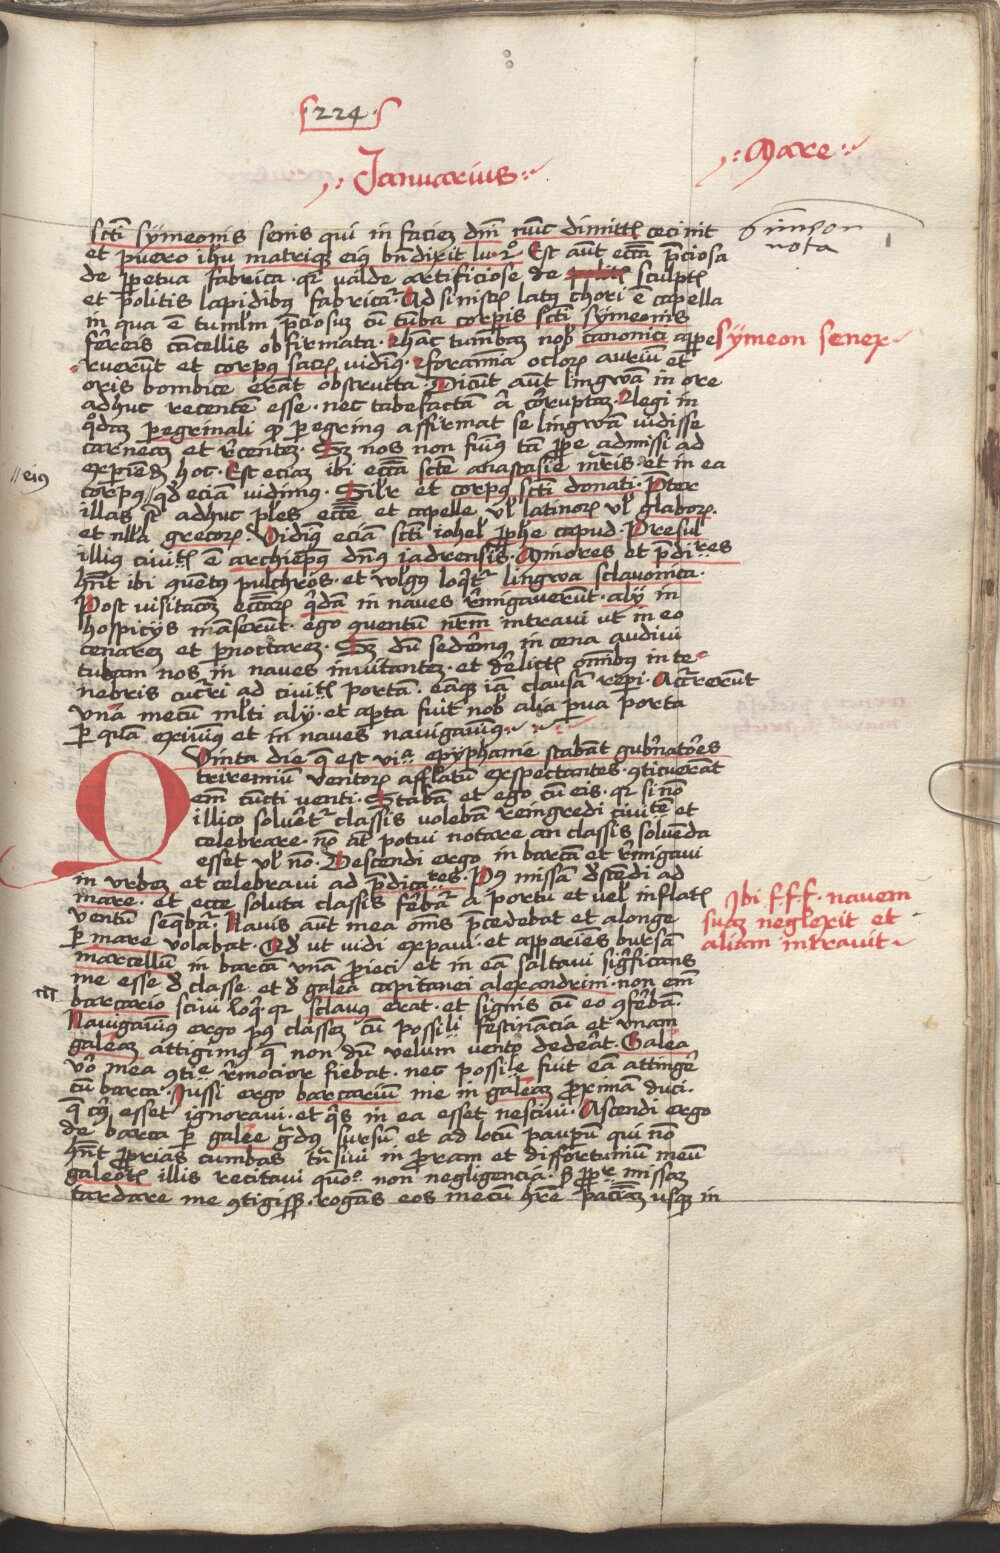 224
Januarius
Mare
scti sÿmeonis senis qui in faciem dni nunc dimittis cecinit
Simeon
nota
et puero ihu matrique eius bndixit lu. 2o. Est aut eccia pciosa
de ppetua fabrica. qr valde artificiose de sculptis
et politis lapidibus fabricatr. Ad sinistrum latus chori e capella
in qua e tumlum pciosum cu tumba corpis scti sÿmeonis
ferreis cancellis obfirmata. hanc tumbam nob canonici appe
sÿmeon senex
ruerunt et corpus sacrum vidimus. foramina oclorum aurium et
oris bombice erant obstructa. Dicut aut lingwam in ore
adhuc recentem esse. nec tabefactam aut corruptam. Legi in
quodam peregrinali quod peregrinus affirmat se lingwam vidisse
carneam et recentem. Sed nos non fuimus tam prope admissi ad
experiendum hoc. Est eciam ibi eccia scte anastasie mris. et in ea
// eius
corpus // quod eciam vidimus. Silr et corpus scti donati. Preter
illas st adhuc plres eccie et capelle vel latinorum vel glaborum.
et nulla grecorum. Vidimus eciam scti iohel pphe capud. Presul
illius civitatis e archiepus dnus iadrensis. Minores et pdicatores
hnt ibi quentus pulchros. et vulgus loquitur lingwa sclavonica.
Post visitacionem ecciarum quidam in naves remigaverunt. alÿ in
hospicÿs manserunt. ego quentum nrm intravi ut in eo
cenarem et pnoctarem. Sed dum sederemus in cena audivi
tubam nos in naves invitantem. et derelictis omnibus in te-
nebris cucurri ad civitatis portam. eamque iam clausam reperi. Accurrerunt
una mecum multi alÿ. et apta fuit nob alia parva porta
per quam exivimus et in naves navigavimus.
Quinta die que est via epÿphanie stabant gubernatores
triremium ventorum afflatum exspectantes. conticuerant
enim cuncti venti. Stabam et ego cum eis. qr si non
illico solveretur classis volebam reingredi civitatem et
celebrare. non aut potui notare an classis solvenda
esset vel non. Descendi ergo in barcam et remigavi
in urbem et celebravi ad pdicatores. Post missam descendi ad
mare. et ecce soluta classis ferebatur a portu et vel inflatis
Ibi f.f.f. navem
suam neglexit et
aliam intravit
ventum sequebatur. Navis aut mea omnes pcedebat et a longe
per mare volabat. Quod ut vidi expavi. et apperiens bursam
marcellum in barcam unam proieci et in eam saltavi significans
me esse de classe et de galea capitanei alexandrini. non enim
barcario scivi loqui qr sclavus erat. et signis cum eo conferebam.
Navigavimus ergo post classem cum possibili festinancia et unam
galeam attigimus que non dum velum vento dederat. Galea
vero mea continue remocior fiebat. nec possibile fuit eam attingere
cum barca. Jussi ergo barcarium me in galeam proximam duci.
que cuius esset ignoravi. et quis in ea esset nescivi. Ascendi ergo
de barca per galee gradus sursum et ad locum pauperum qui non
hnt proprias cumbas transivi in proram et diffortunium meum
galeotis illis recitavi quomodo non negligencia. sed propter missam
tardare me contigisset. rogans eos mecum habere pacienciam usque in